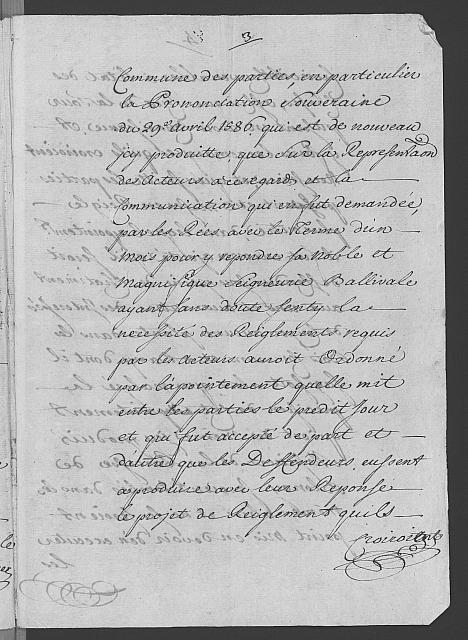 3
Commune des parties, en particulier
la Prononciation Souveraine
du 29e avril 1586, qui est de nouveau
jcy produitte que sur la Representaõn
des acteurs a ces egard, et la
Communication qui en fut demandée,
par les Rées avec le Terme d'un
Mois pour y repondre sa Noble et
Magnifique Seigneurie Ballivale
ayant sans doute senty la
necessité des Reiglements requis
par les acteurs auroit Ordonné
par lapointement quelle mit
entre les parties le predit Jour
et qui fut accepté de part et
dautre que les Deffendeurs eussent
a produire avec leur Reponse
le projet de Reiglement quils
Croioient